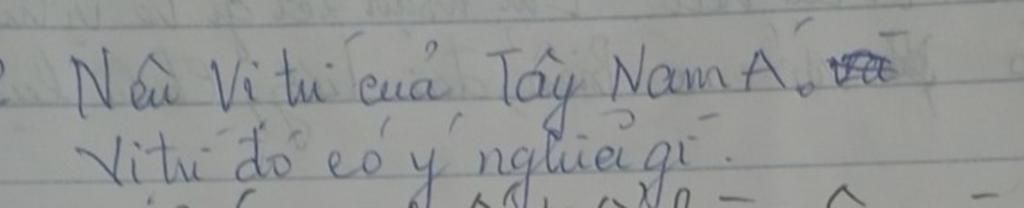 Nêu Vị trí của Tây Nam Á.
Vị trí đó có ý nghĩa gì.